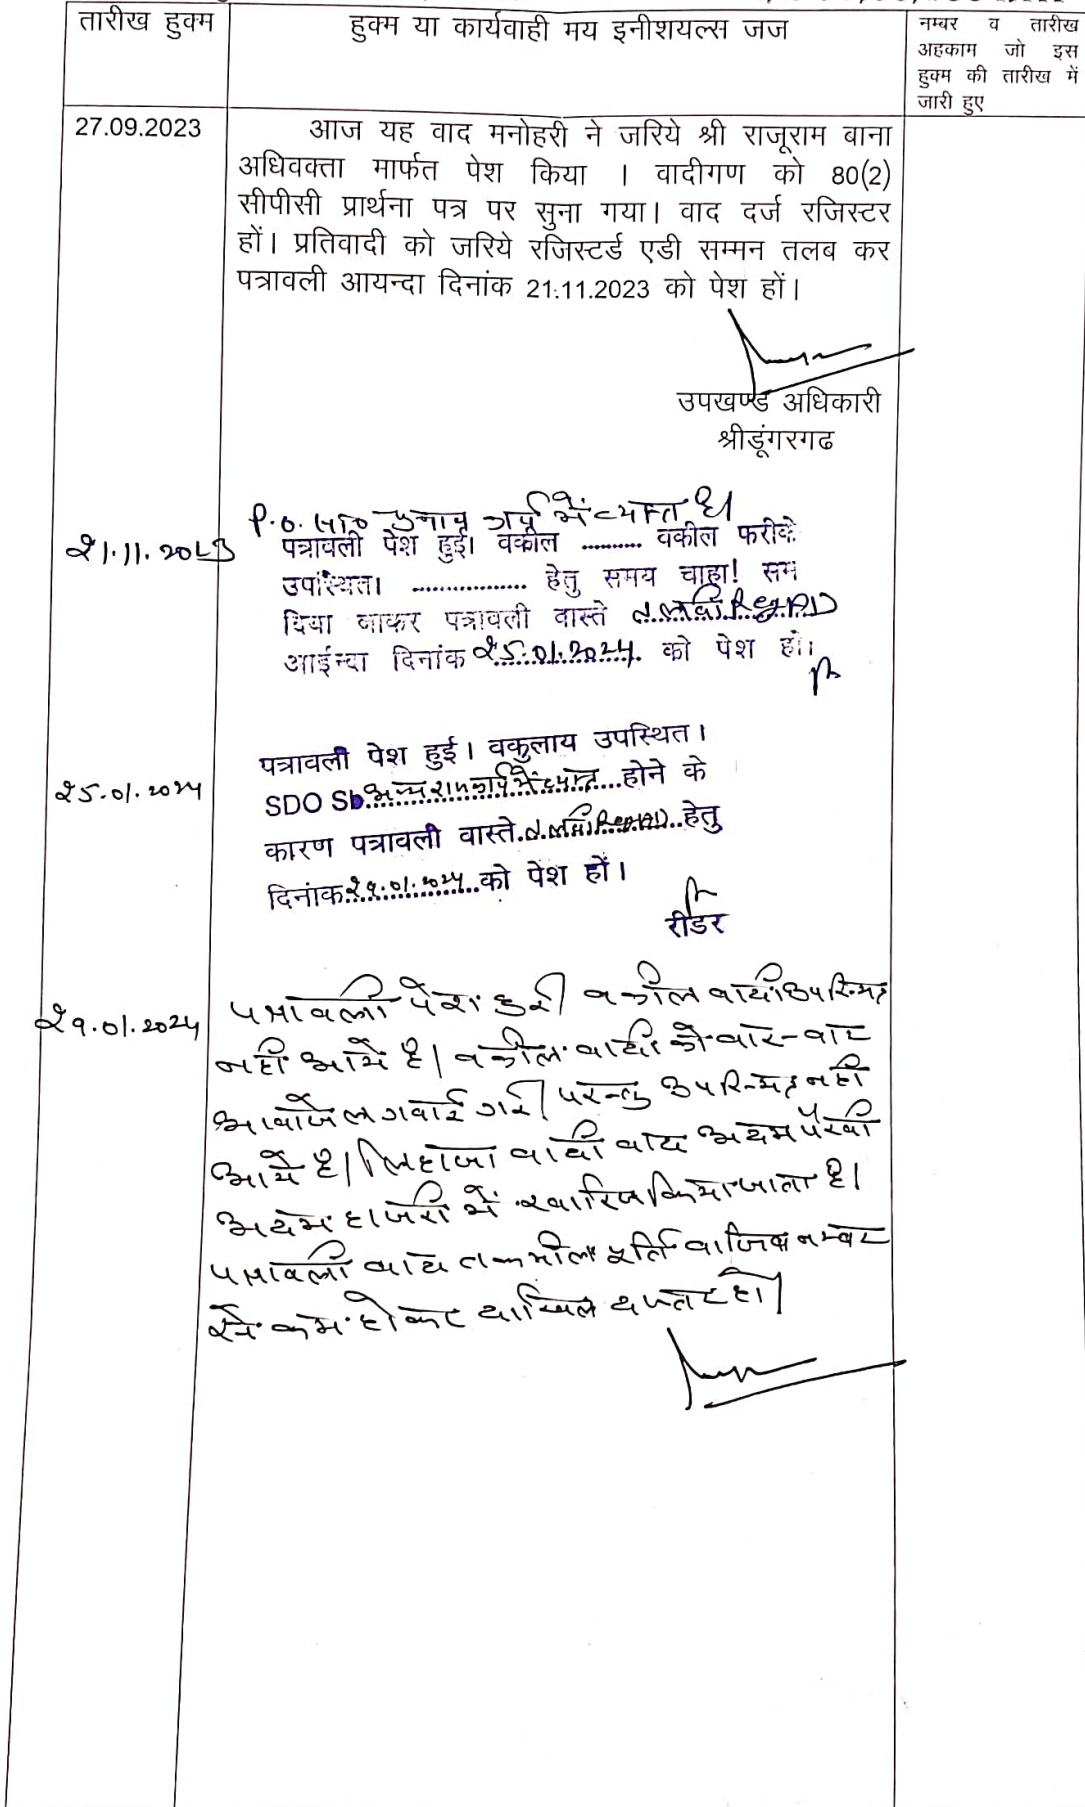 तारीख हुक्म
हुक्म या कार्यवाही मय इनीशयल्स जज
नम्बर व तारीख
अहकाम जो इस
हुक्म की तारीख में
जारी हुए
27.09.2023
आज यह वाद मनोहरी ने जरिये श्री राजूराम बाना
अधिवक्ता मार्फत पेश किया । वादीगण को 80(2)
सीपीसी प्रार्थना पत्र पर सुना गया। वाद दर्ज रजिस्टर
हों। प्रतिवादी को जरिये रजिस्टर्ड एडी सम्मन तलब कर
पत्रावली आयन्दा दिनांक 21.11.2023 को पेश हों।
उपखण्ड अधिकारी
श्रीडूंगरगढ
P.O. चुनाव कार्य में व्यस्त है।
21.11.2023
पत्रावली पेश हुई। वकील .......... वकील फरीके
उपस्थित। ................. हेतु समय चाहा! सम
दिया जाकर पत्रावली वास्ते
आईन्दा दिनांक 25.01.2024. को पेश हो।
25.01.2024
पत्रावली पेश हुई। वकुलाय उपस्थित।
SDO Sb. अन्य राजकार्य में व्यस्त होने के
कारण पत्रावली वास्ते हेतु
दिनांक 29.01.2024 को पेश हों।
रीडर
29.01.2024
पत्रावली पेश हुई। वकील वादी उपस्थित
नहीं आये है। वकील वादी को बार-बार
आवाजे लगवाई गई। परन्तु उपस्थित नहीं
आये है। लिहाजा वादी वाद अदम पैरवी
अदम हाजरी में खारिज किया जाता है।
पत्रावली बाद तकमील पूर्ति नम्बर
से कम होकर दाखिल दफ्तर हो।